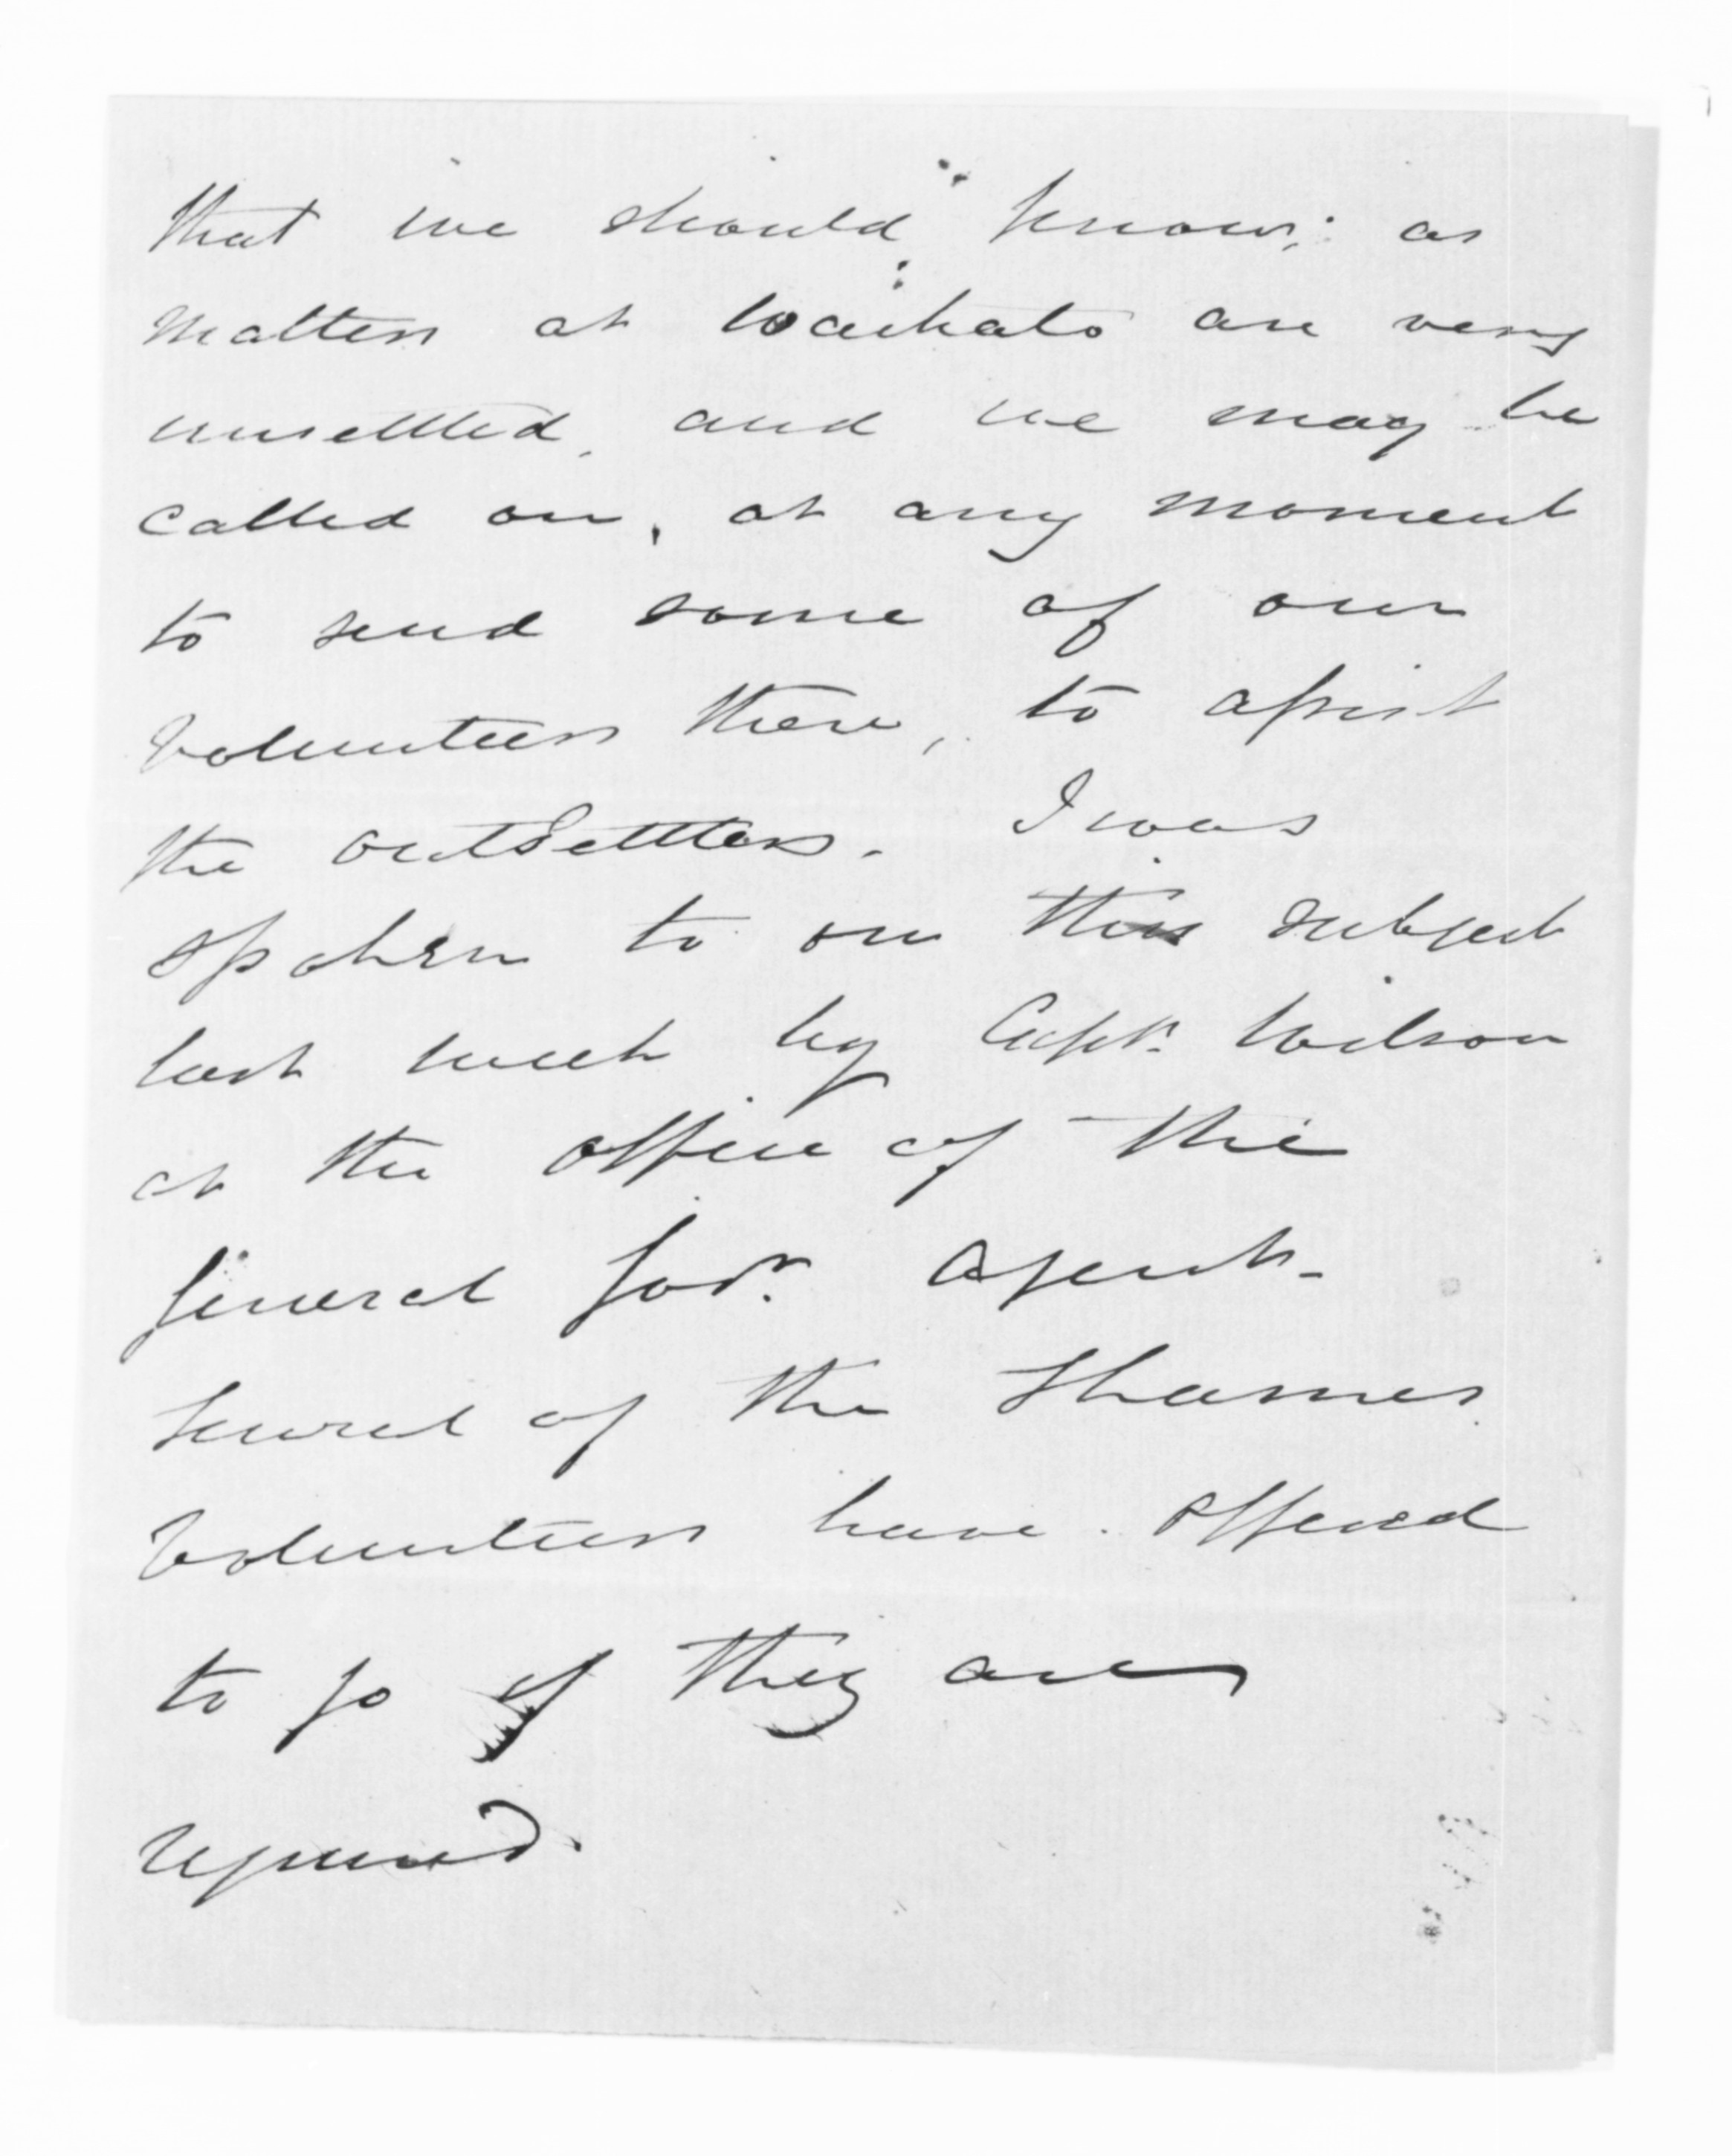 that we should know; as
matters at Waikato are very
unsettled, and we may be
called on, at any moment
to send some of our
Volunteers there, to assist
the outSettlers. I was
spoken to on this subject
last week by Captn. Wilson
at the office of the
General Govr. Agent.
Several of the Thames
Volunteers have offered
to go if they are
required.